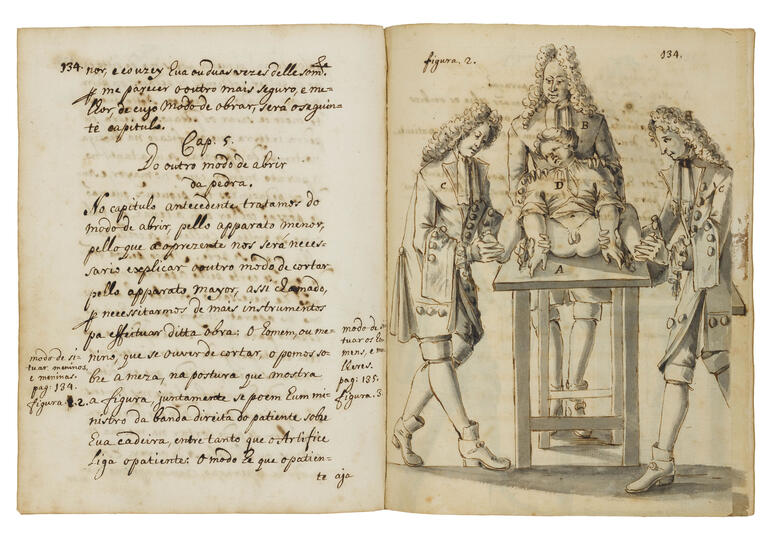 134.
nor, e couzey Eua ou duas vezes delle som.
p me parecer o outro mais seguro, e me-
lhor, de cujo Modo de obrar, será o seguin-
te capitulo.
Cap. 5.
Do outro modo de abrir
da pedra.
No capitulo antecedente tratamos do
modo de abrir, pello apparato menor,
pello que a oprezente nos será neces-
sario explicar o outro modo de cortar
pello apparato mayor, assi chamado,
p necessitarmos de mais instrumentos
pa effectuar ditta obra: O Eomem, ou me-
nino, que se ouver de cortar, o pomos so-
bre a meza, na postura que mostra
a figura, juntamente se poem Eum mi-
nistro da banda direita do patiente sobre
Eua cadeira, entre tanto que o Artifice
Liga o patiente: O modo Ee que o patien-
te aja
modo de si-
tuar meninos,
e meninas.
pag: 134.
figura. 2.
modo de si-
tuar os Eo-
mens, e mo-
lheres.
pag: 135.
figura. 3.
figura. 2.
134.
B
C
D
C
A